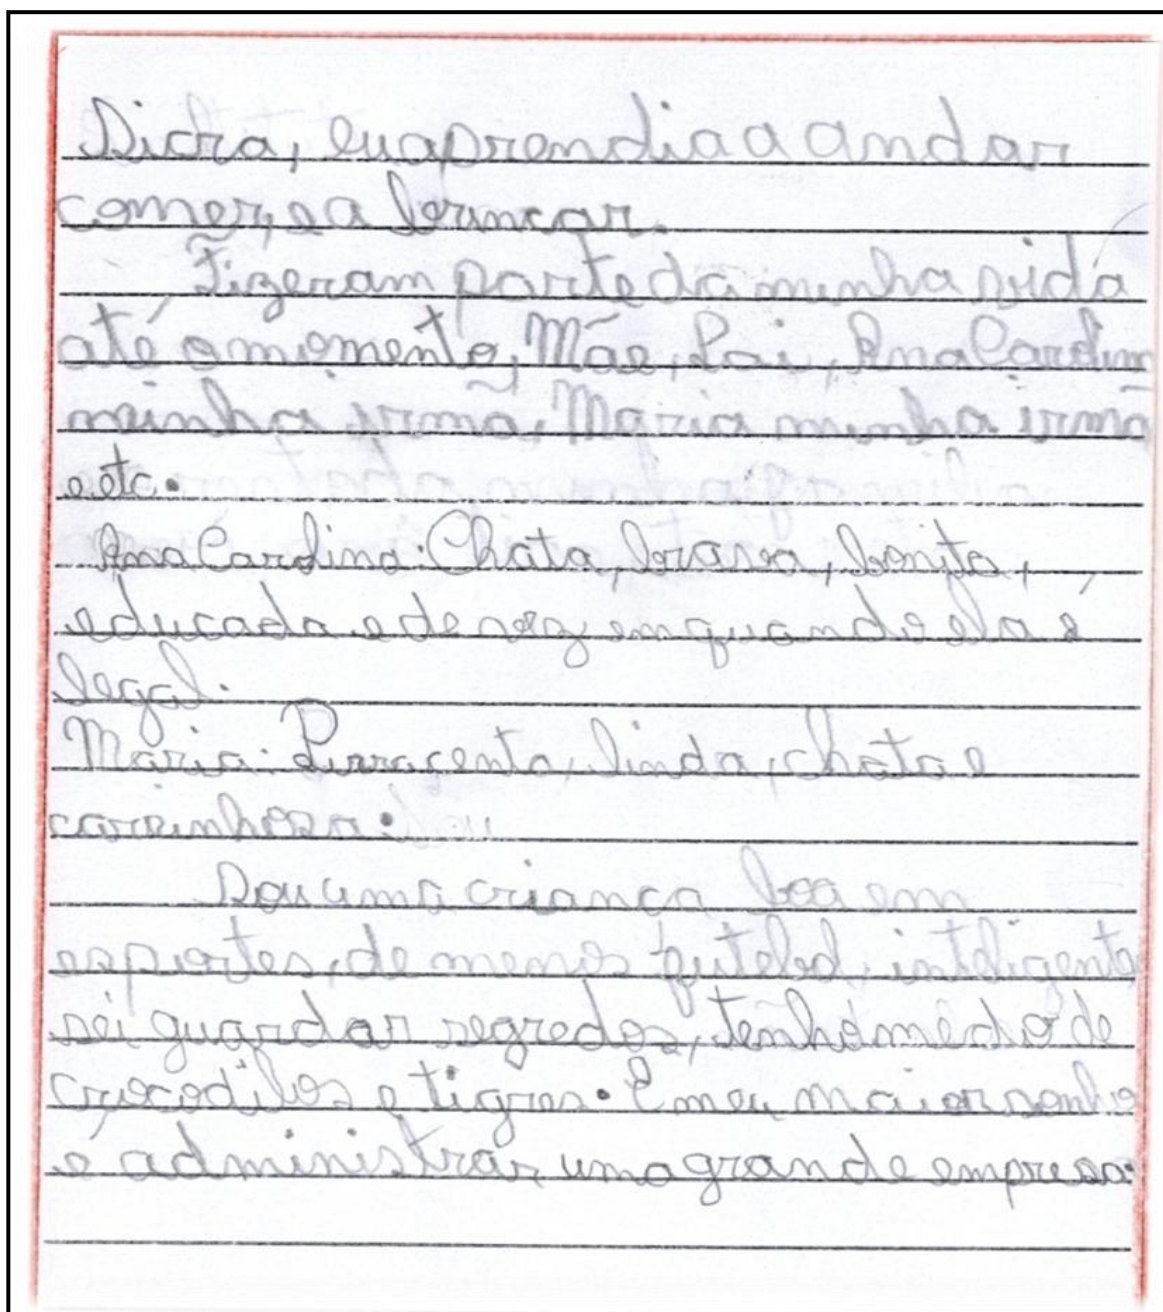 Dicra, eu aprendia a andar
comer, e a brincar.
Fizeram parte da minha vida
até o momento, Mãe, Pai, Ana Cardina
minha irmã, Maria minha irmã
e etc.
Ana Cardina: Chata, brava, bonita,
educada e de vez enquando ela é
legal.
Maria: Pirracenta, linda, chata e
carinhosa.
Sou uma crianca boa em
esportes, de menos futebol, inteligente
sei guardar segredos, tenho medo de
crocodilos e tigres. E meu maior sonho
é administrar uma grande empresa.